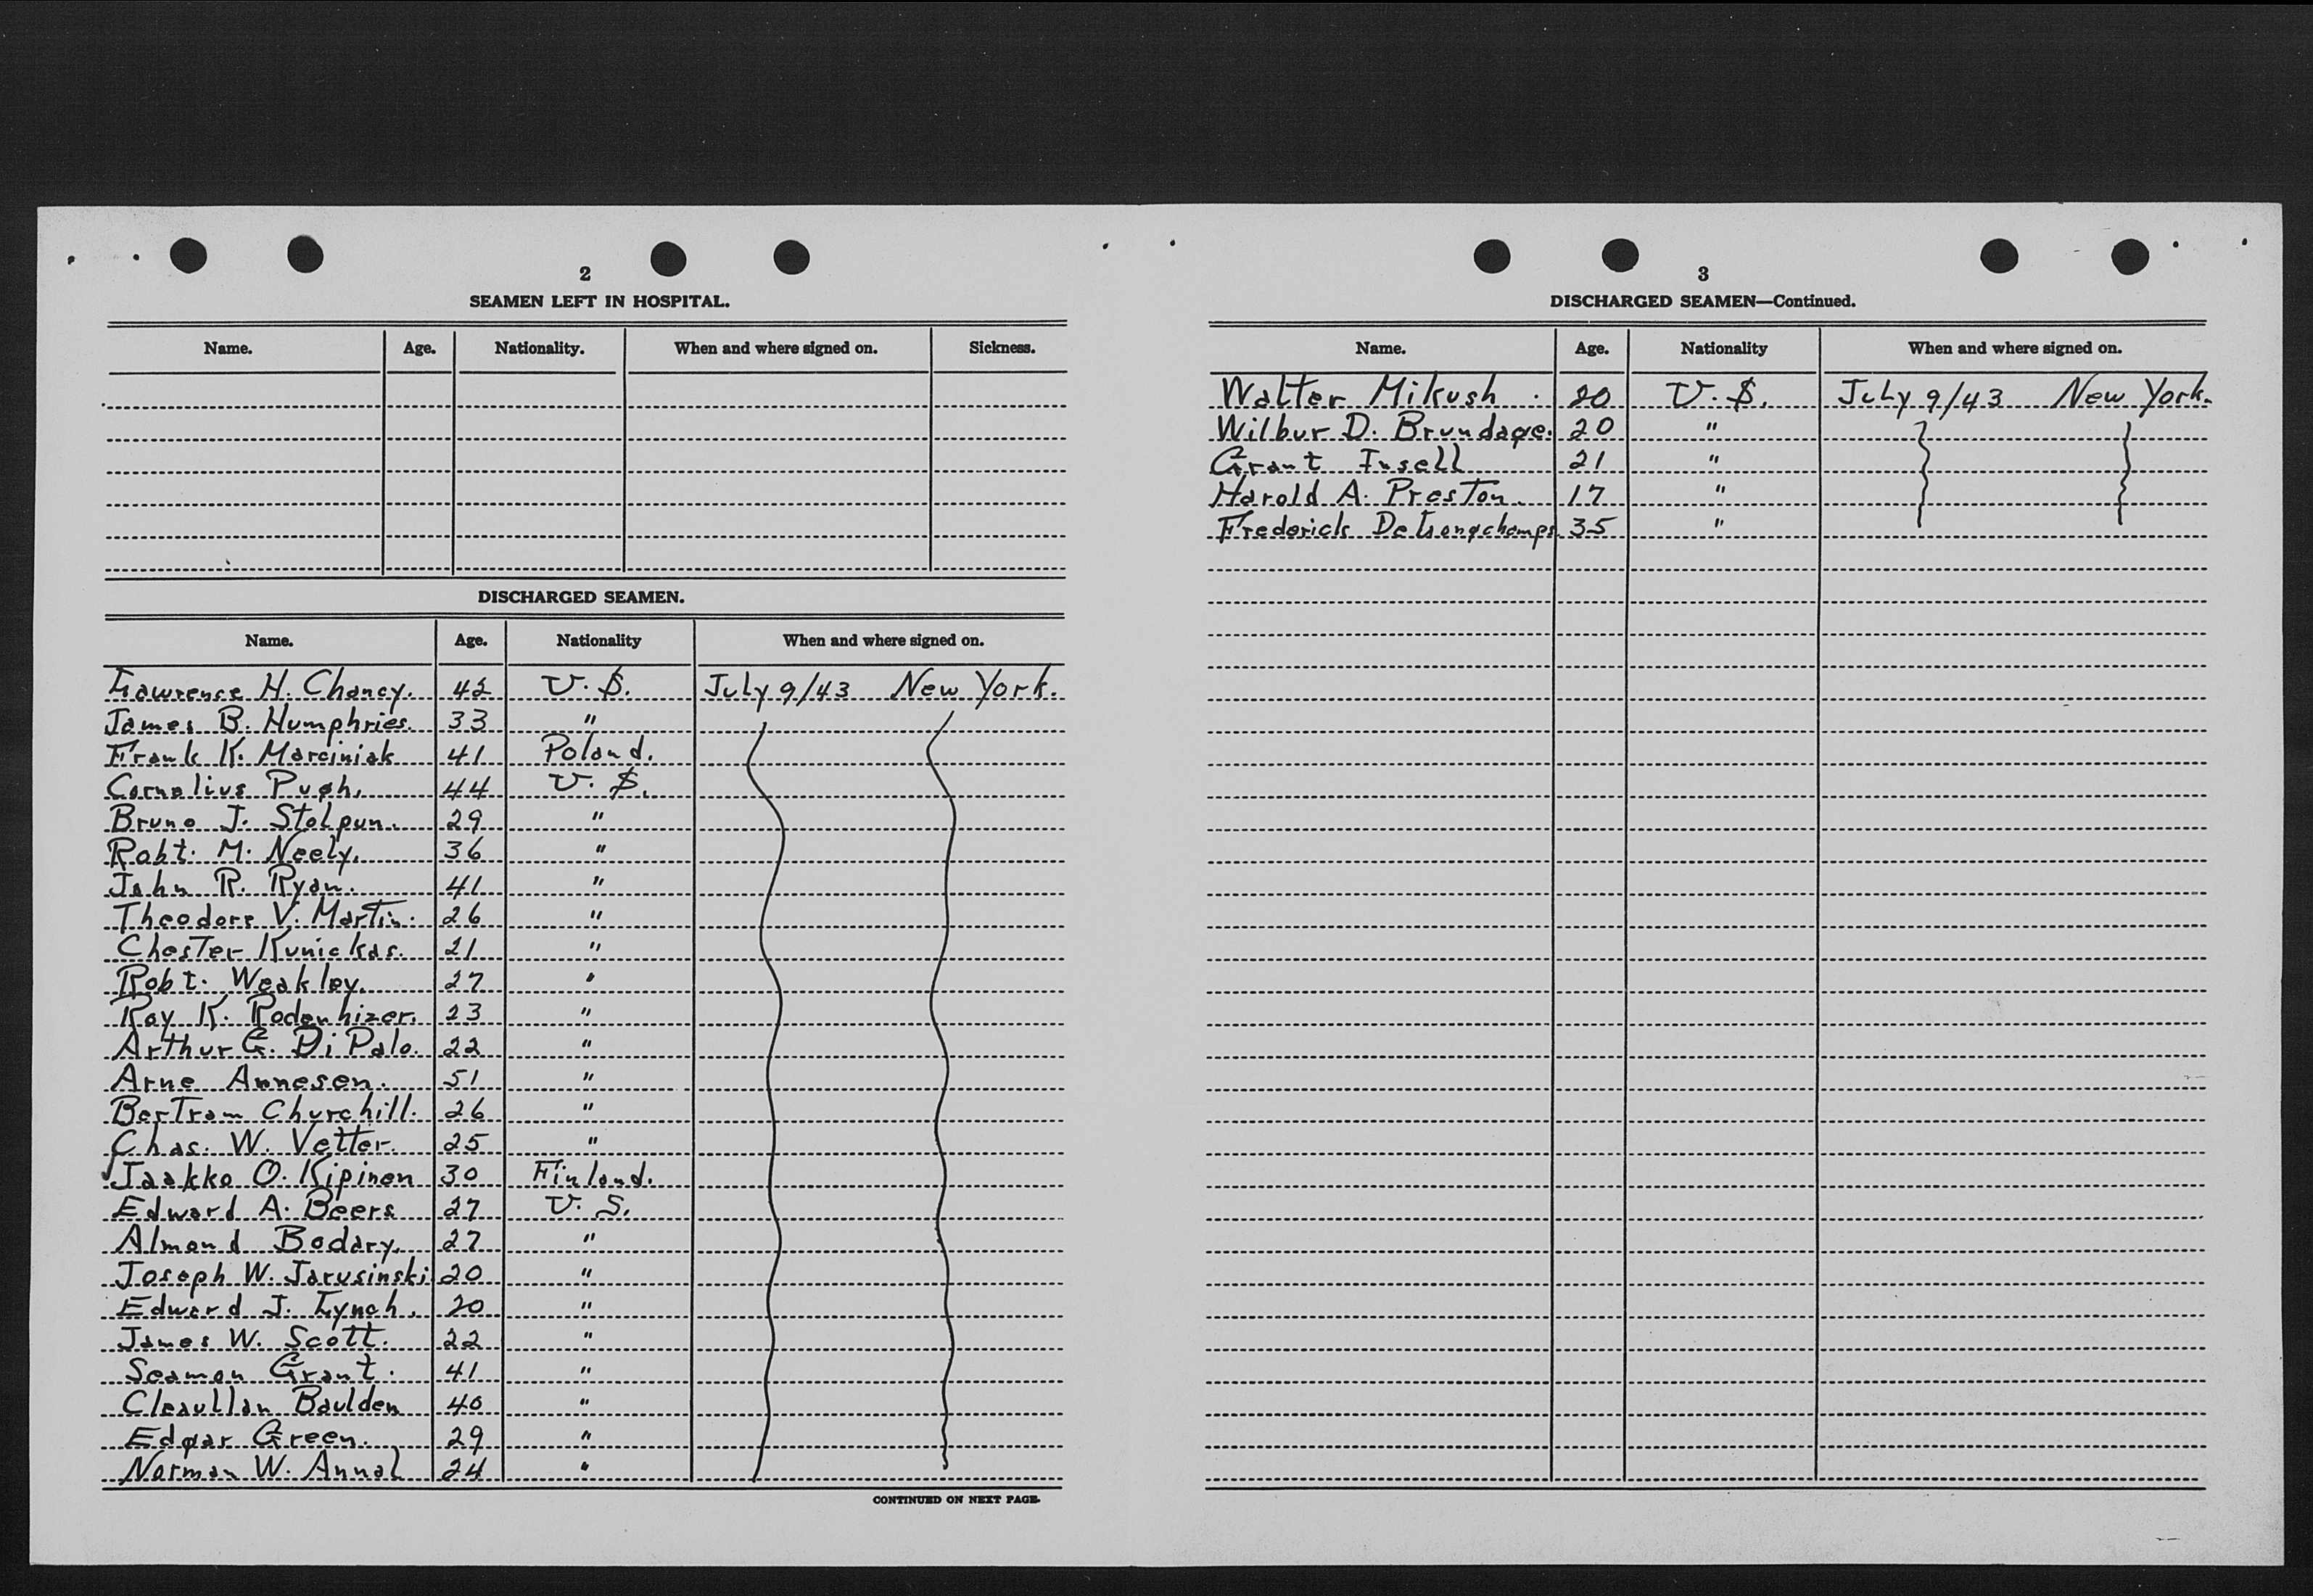 2
SEAMEN LEFT IN HOSPITAL.
Name. Age. Nationality. When and where signed on. Sickness.
DISCHARGED SEAMEN.
Name. Age. Nationality When and where signed on.
Lawrence H. Chancy. 42 U.S. July 9/43 New York.
James B. Humphries. 33 "
Frank K. Marciniak 41 Poland.
Cornelius Pugh. 44 U.S.
Bruno J. Stolpun. 29 "
Robt. M. Neely. 36 "
John R. Ryan. 41 "
Theodore V. Martin. 26 "
Chester Kunickas. 21 "
Robt. Weakley. 27 "
Ray K. Rodenhizer. 23 "
Arthur G. Di Palo. 22 "
Arne Annesen. 51 "
Bertram Churchill. 26 "
Chas. W. Vetter. 25 "
Jaakko O. Kipinen 30 Finland.
Edward A. Beers 27 U.S.
Almond Bodary. 27 "
Joseph W. Jarusinski 20 "
Edward J. Lynch. 20 "
James W. Scott. 22 "
Seamon Grant. 41 "
Cleaullan Baulden 40 "
Edgar Green. 29 "
Norman W. Annal 24 "
CONTINUED ON NEXT PAGE.
3
DISCHARGED SEAMEN—Continued.
Name. Age. Nationality When and where signed on.
Walter Mikush. 20 U.S. July 9/43 New York.
Wilbur D. Brundage. 20 "
Grant Insell 21 "
Harold A. Preston. 17 "
Frederick DeLongchamps. 35 "